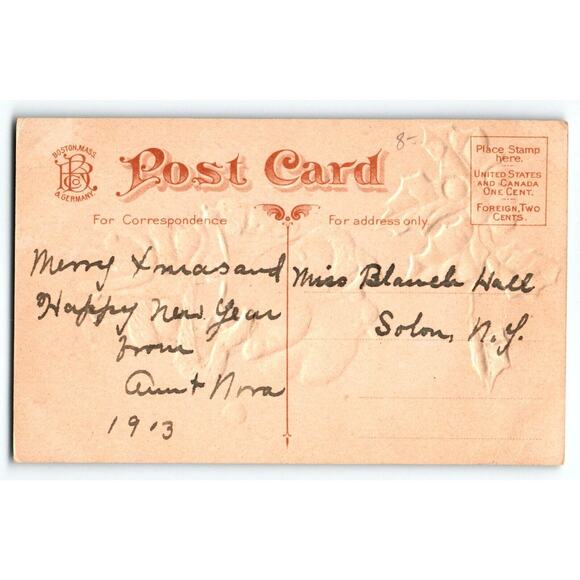 BOSTON, MASS.
& GERMANY.
Post Card
8-
Place Stamp
here.
UNITED STATES
AND CANADA
ONE CENT.
FOREIGN, TWO
CENTS.
For Correspondence
For address only
Merry Xmas and
Happy New Year
from
Aunt Nora
1913
Miss Blanch Hall
Solon, N.Y.